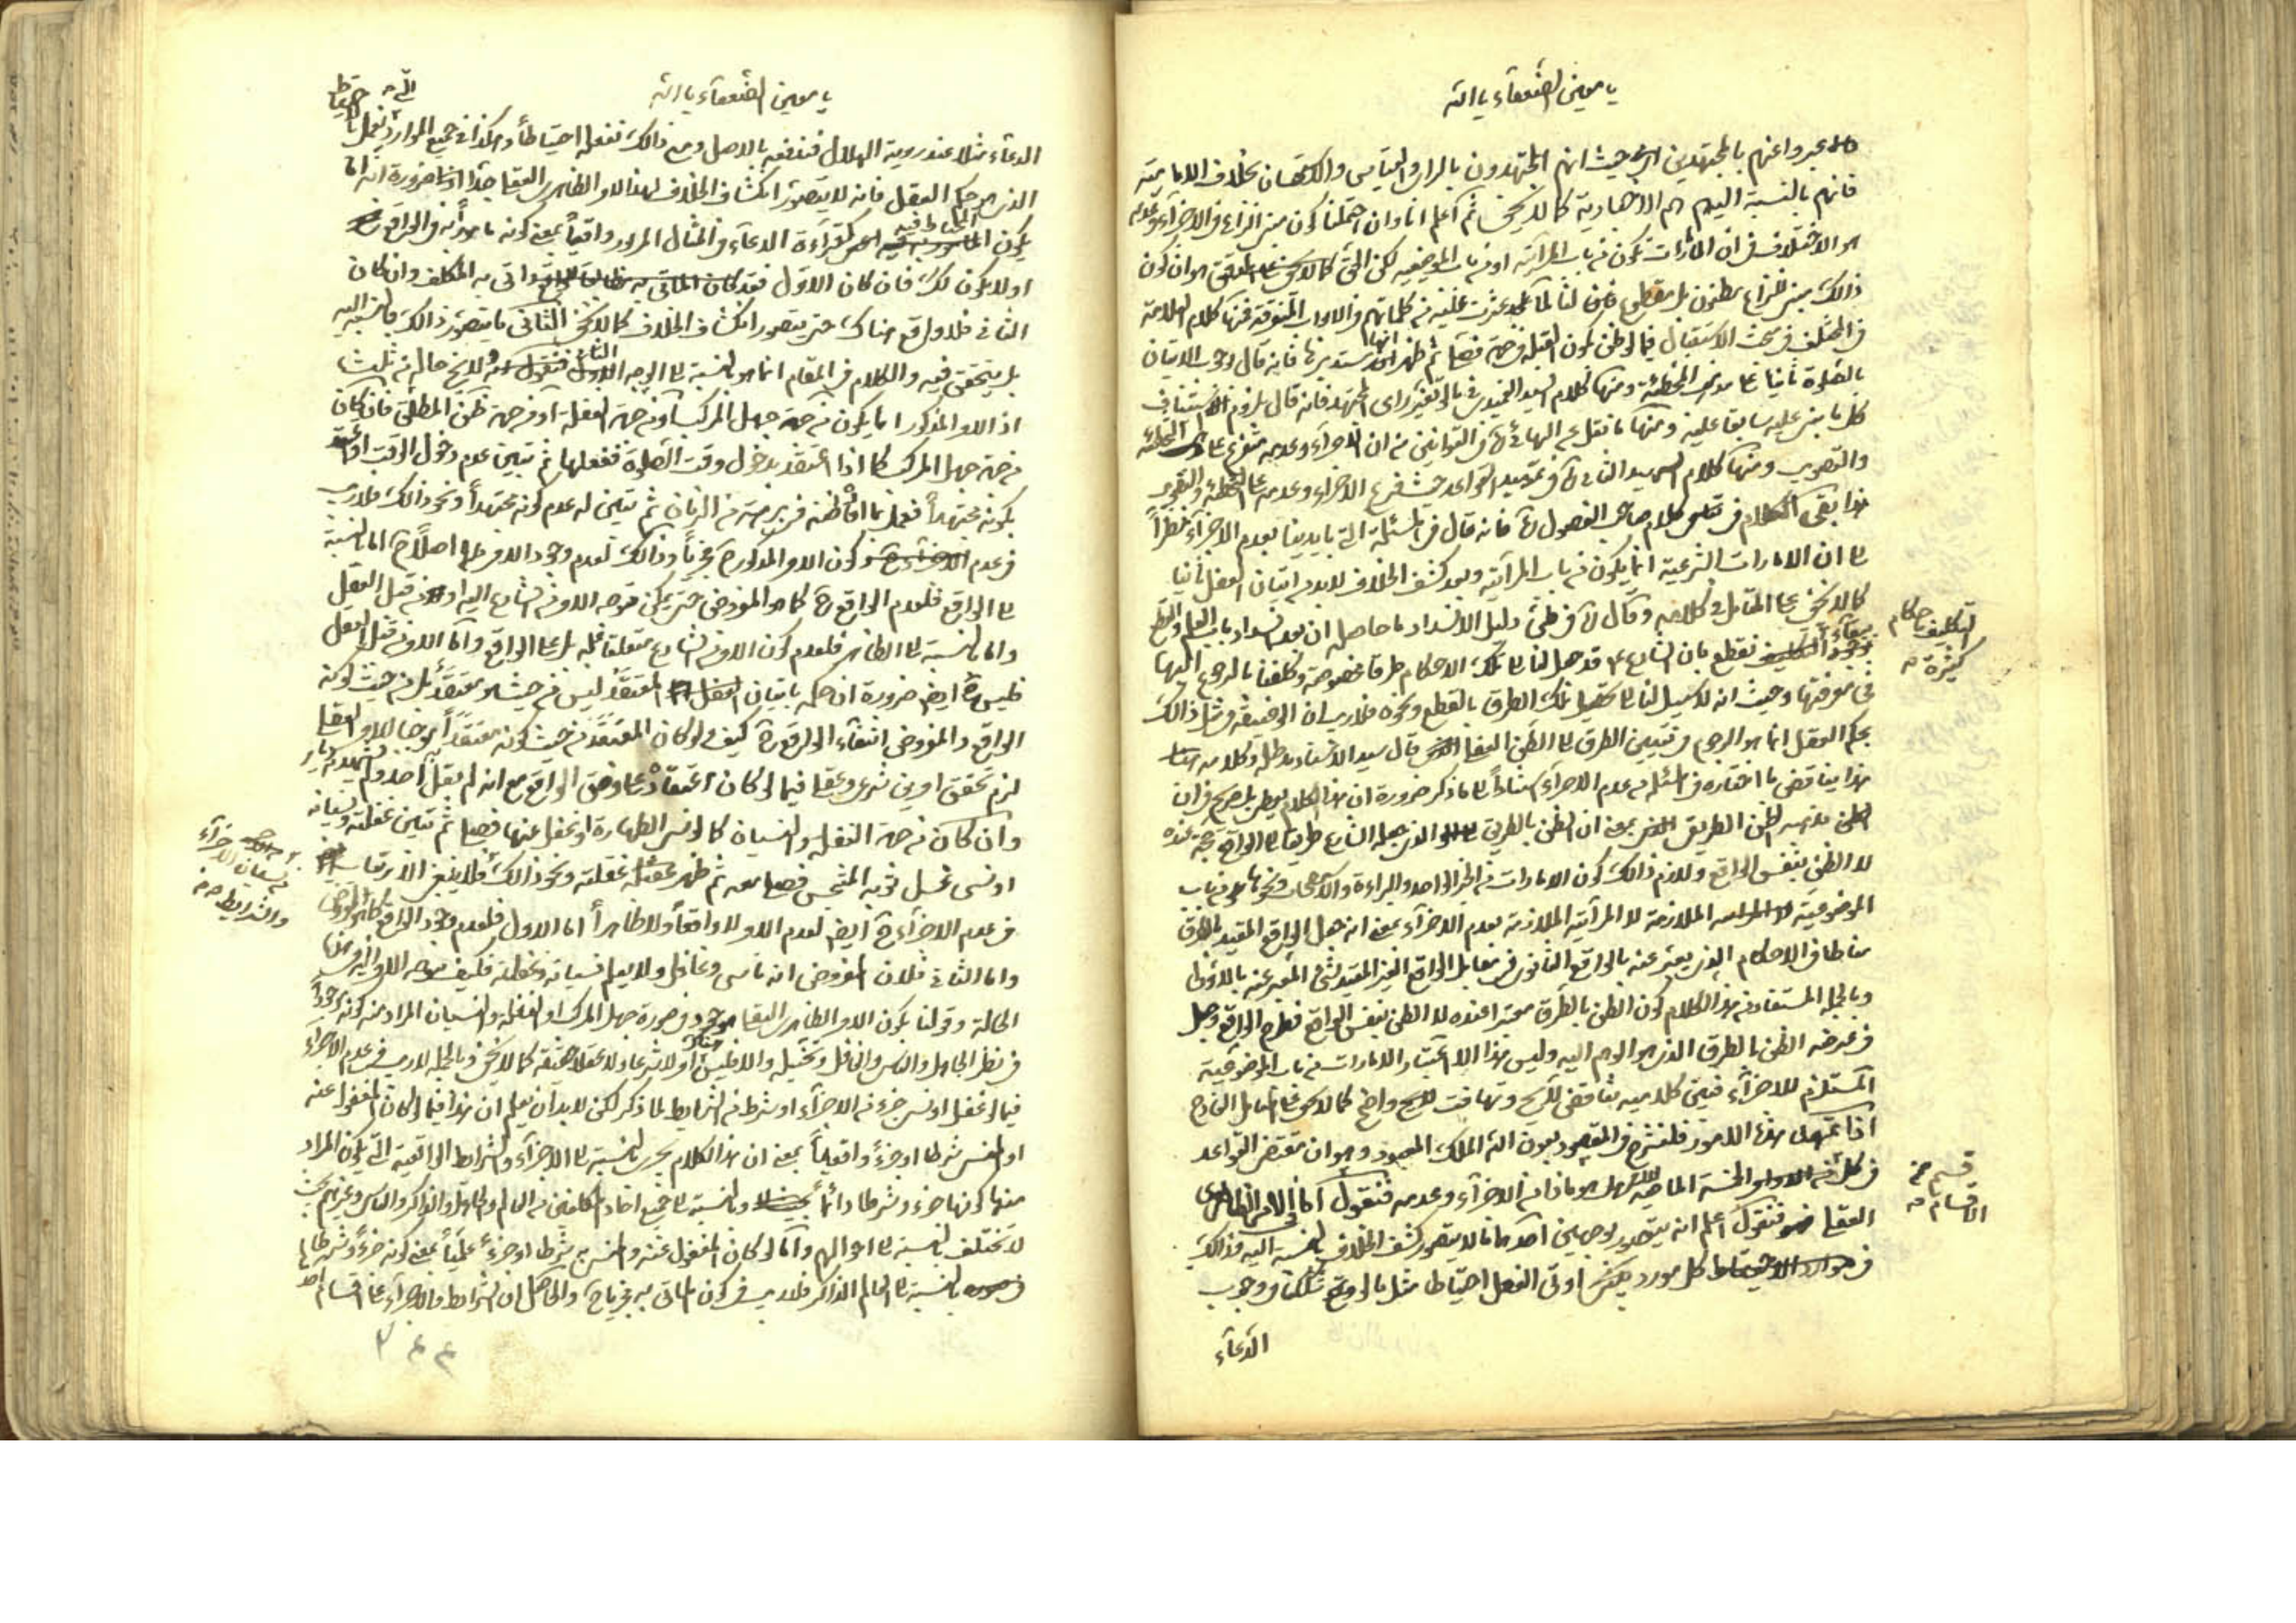 يا معين الضعفاء يا الله
عبروا عنهم بالمجتهدين حيث انهم المجتهدون بالراى والقياس والاستحسان بخلاف الامامية
فانهم بالنسبة اليهم هم الاخبارية كما لا يخفى ثم اعلم انا وان احتملنا كون مبنى النزاع فى الاجزاء وعدمه
هو الاختلاف فى ان الامارات تكون من باب المرآتية او من باب الموضوعية لكن
ذلك مبنى للنزاع مظنون بل مقطوع عثرت عليه من كلماتهم فى الابواب المتفرقة فمنها كلام العلامة
فى المختلف فى مبحث الاستقبال فيما لو ظن كون القبلة فى جهة فصلى ثم ظهر انها استدبرها فانه قال بوجوب الاتيان
بالصلوة ثانيا على مذهب المخطئة ومنها كلام السيد العميدى تغير راى المجتهد فانه قال بلزوم الاستيناف
كل ما بنى عليه سابقا عليه ومنها ما نقل عن فى القوانين من ان الاجزاء وعدمه متفرع على التخطئة
والتصويب ومنها كلام الشهيد الثانى فى تمهيد القواعد حيث فرع الاجزاء وعدمه على التخطئة والتصويب
بقى الكلام فى كلام صاحب الفصول فانه قال فى المسئلة التى بايدينا بعدم الاجزاء نظرا
الى ان الامارات الشرعية انما يكون من باب المرآتية وبعد كشف الخلاف لابد من اتيان الفعل ثانيا
كما لا يخفى على المتأمل فى كلامه وقال فى دليل الانسداد ما حاصله ان بعد انسداد باب العلم والقطع
ببقاء التكليف باحكام كثيرة نقطع بان الشارع قد جعل لنا الى تلك الاحكام طرقا مخصوصة وكلفنا بالرجوع اليها
فى معرفتها وحيث انه لا سبيل لنا الى تحصيل تلك الطرق بالقطع ونحوه فلا ريب ان الوظيفة فى مثل ذلك
بحكم العقل انما هو الرجوع فى تعيين الطرق الى الظن الفعلى قال سيد الاستاد مد ظله وكلامه
هذا يناقض ما اختاره فى المسئلة من عدم الاجزاء استنادا الى ما ذكر ضرورة ان هذا الكلام صريح فى ان
الظن الطريق بمعنى ان الظن بالطريق الذى جعله الشارع طريقا الى الواقع حجة عنده
لا الظن بنفس الواقع ولازم ذلك كون الامارات من الخبر الواحد والبراءة والاستصحاب ونحوها من باب
الموضوعية الملازمة لا المرآتية الملازمة لعدم الاجزاء بمعنى انه جعل الواقع المقيد بالطرق
مناطا فى الاحكام الذى يعبر عنه بالواقع الثانوى فى مقابل الواقع الغير المقيد بشئ المعبر عنه بالاولى
وبالجملة المستفاد من هذا الكلام كون الظن بالطرق معتبرا عنده لا الظن بنفس الواقع فطرح الواقع وجعل
فى عرضه الظن بالطرق الذى هو الوهم اليه وليس هذا الا اعتبار الامارات من باب الموضوعية
المستلزم للاجزاء فبين كلاميه تناقض صريح وتهافت واضح كما لا يخفى على المتأمل
اذا تمهد هذه الامور فلنشرع فى المقصود بعون الله الملك المعبود وهو ان مقتضى القواعد
فى كل قسم من الاقسام الخمسة الماضية هل هو ماذا من الاجزاء وعدمه فنقول اما الامر الظاهرى
العقلى فنقول اعلم انه يتصور بوجهين احدهما ما لا يتصور كشف الخلاف بالنسبة اليه وذلك
فى كل مورد يكون اوتى الفعل احتياطا مثل ما لو وقع شكنا فى وجوب
الدعاء
التكليف باحكام
كثيرة
قسم من
الاقسام
يا معين الضعفاء يا الله
الدعاء مثلا عند روية الهلال فندفعه بالاصل ومع ذلك نفعله احتياطا وهكذا فى جميع الموارد التى نعمل بالاحتياط
الذى هو حكم العقل فانه لا يتصور انكشاف الخلاف لهذا الامر الظاهرى العقلى ضرورة انه اما
يكون المحتاط فيه كقراءة الدعاء فى المثال المزبور واقعيا بمعنى كونه مامورا به فى الواقع
او لا يكون كذلك فان كان الاول فقد اتى به المكلف وان كان
الثانى فلا واقع هناك حتى يتصور انكشاف الخلاف كما لا يخفى الثانى ما يتصور ذلك بالنسبة اليه
بل يتحقق فيه والكلام فى المقام انما هو بالنسبة الى الوجه الثانى ولا يخ حاله من ثلث
اذ الامر المذكور اما يكون من جهة جهل المركب او من جهة الغفلة او من جهة ظن المطلق فان كان
من جهة جهل المركب كما اذا اعتقد بدخول وقت الصلوة ففعلها ثم تبين عدم دخول الوقت او اعتقد
بكونه مجتهدا فعمل بما ظنه فى برهة من الزمان ثم تبين له عدم كونه مجتهدا ونحو ذلك فلا ريب
فى عدم كون الامر المذكور مجزيا وذلك لعدم وجود الامر اصلا اما بالنسبة
الى الواقع فلعدم الواقع كما هو المفروض حتى يمكن توجه الامر من الشارع اليه او من قبل العقل
واما بالنسبة الى الظاهر فلعدم كون الامر من الشارع متعلقا بل على الواقع واما الامر من قبل العقل
فليس ايض ضرورة ان حكمه باتيان المعتقد ليس من حيث هو معتقد بل من حيث كونه
الواقع والمفروض انتفاء الواقع كيف ولو كان المعتقد من حيث كونه معتقدا موجبا للامر العقلى
لزم تحقق امرين شرعى وعقلى فيما لو كان اعتقاده على وفق الواقع مع انه لم يقل به احد
وان كان من جهة الغفلة والنسيان كما لو نسى الطهارة او غفل عنها فصلى ثم تبين غفلته ونسيانه
او نسى غسل ثوبه المتنجس فصلى معه ثم ظهر غفلته ونحو ذلك فلا ينبغى الارتياب
فى عدم الاجزاء ايض لعدم الامر لا واقعا ولا ظاهرا اما الاول فلعدم وجود الواقع كما هو المفروض
واما الثانى فلان المفروض انه ناسى وغافل ولا يعلم نسيانه وغفلته فكيف يتوجه الامر اليه
الحالة وقولنا بكون الامر الظاهرى العقلى موجود فى صورة جهل المركب او الغفلة والنسيان المراد منه كونه موجودا
فى نظر الجاهل والناسى والغافل وتخيله والا فليس هناك امر لا شرعا ولا عقلا حقيقة كما لا يخفى وبالجملة لا ريب فى عدم الاجزاء
فيما لو غفل او نسى جزء من الاجزاء او شرط من الشرايط لما ذكر لكن لابد ان يعلم ان هذا فيما لو كان المغفول عنه
او المنسى شرطا او جزء واقعيا بمعنى ان هذا الكلام يجرى بالنسبة الى الاجزاء والشرايط الواقعية التى يكون المراد
منها كونها جزء وشرطا دائما وبالنسبة الى جميع احاد المكلفين من العالم والجاهل والذاكر والناسى وغيرهم بحيث
لا تختلف بالنسبة الى احوالهم واما لو كان المغفول عنه والمنسى شرطا او جزء علميا بمعنى كونه جزء وشرطا
بالنسبة الى العالم الذاكر فلا ريب فى كون المأتى به مجزيا والحاصل ان الشرايط والاجزاء على اقسام احدها
من الاجزاء
والشرايط